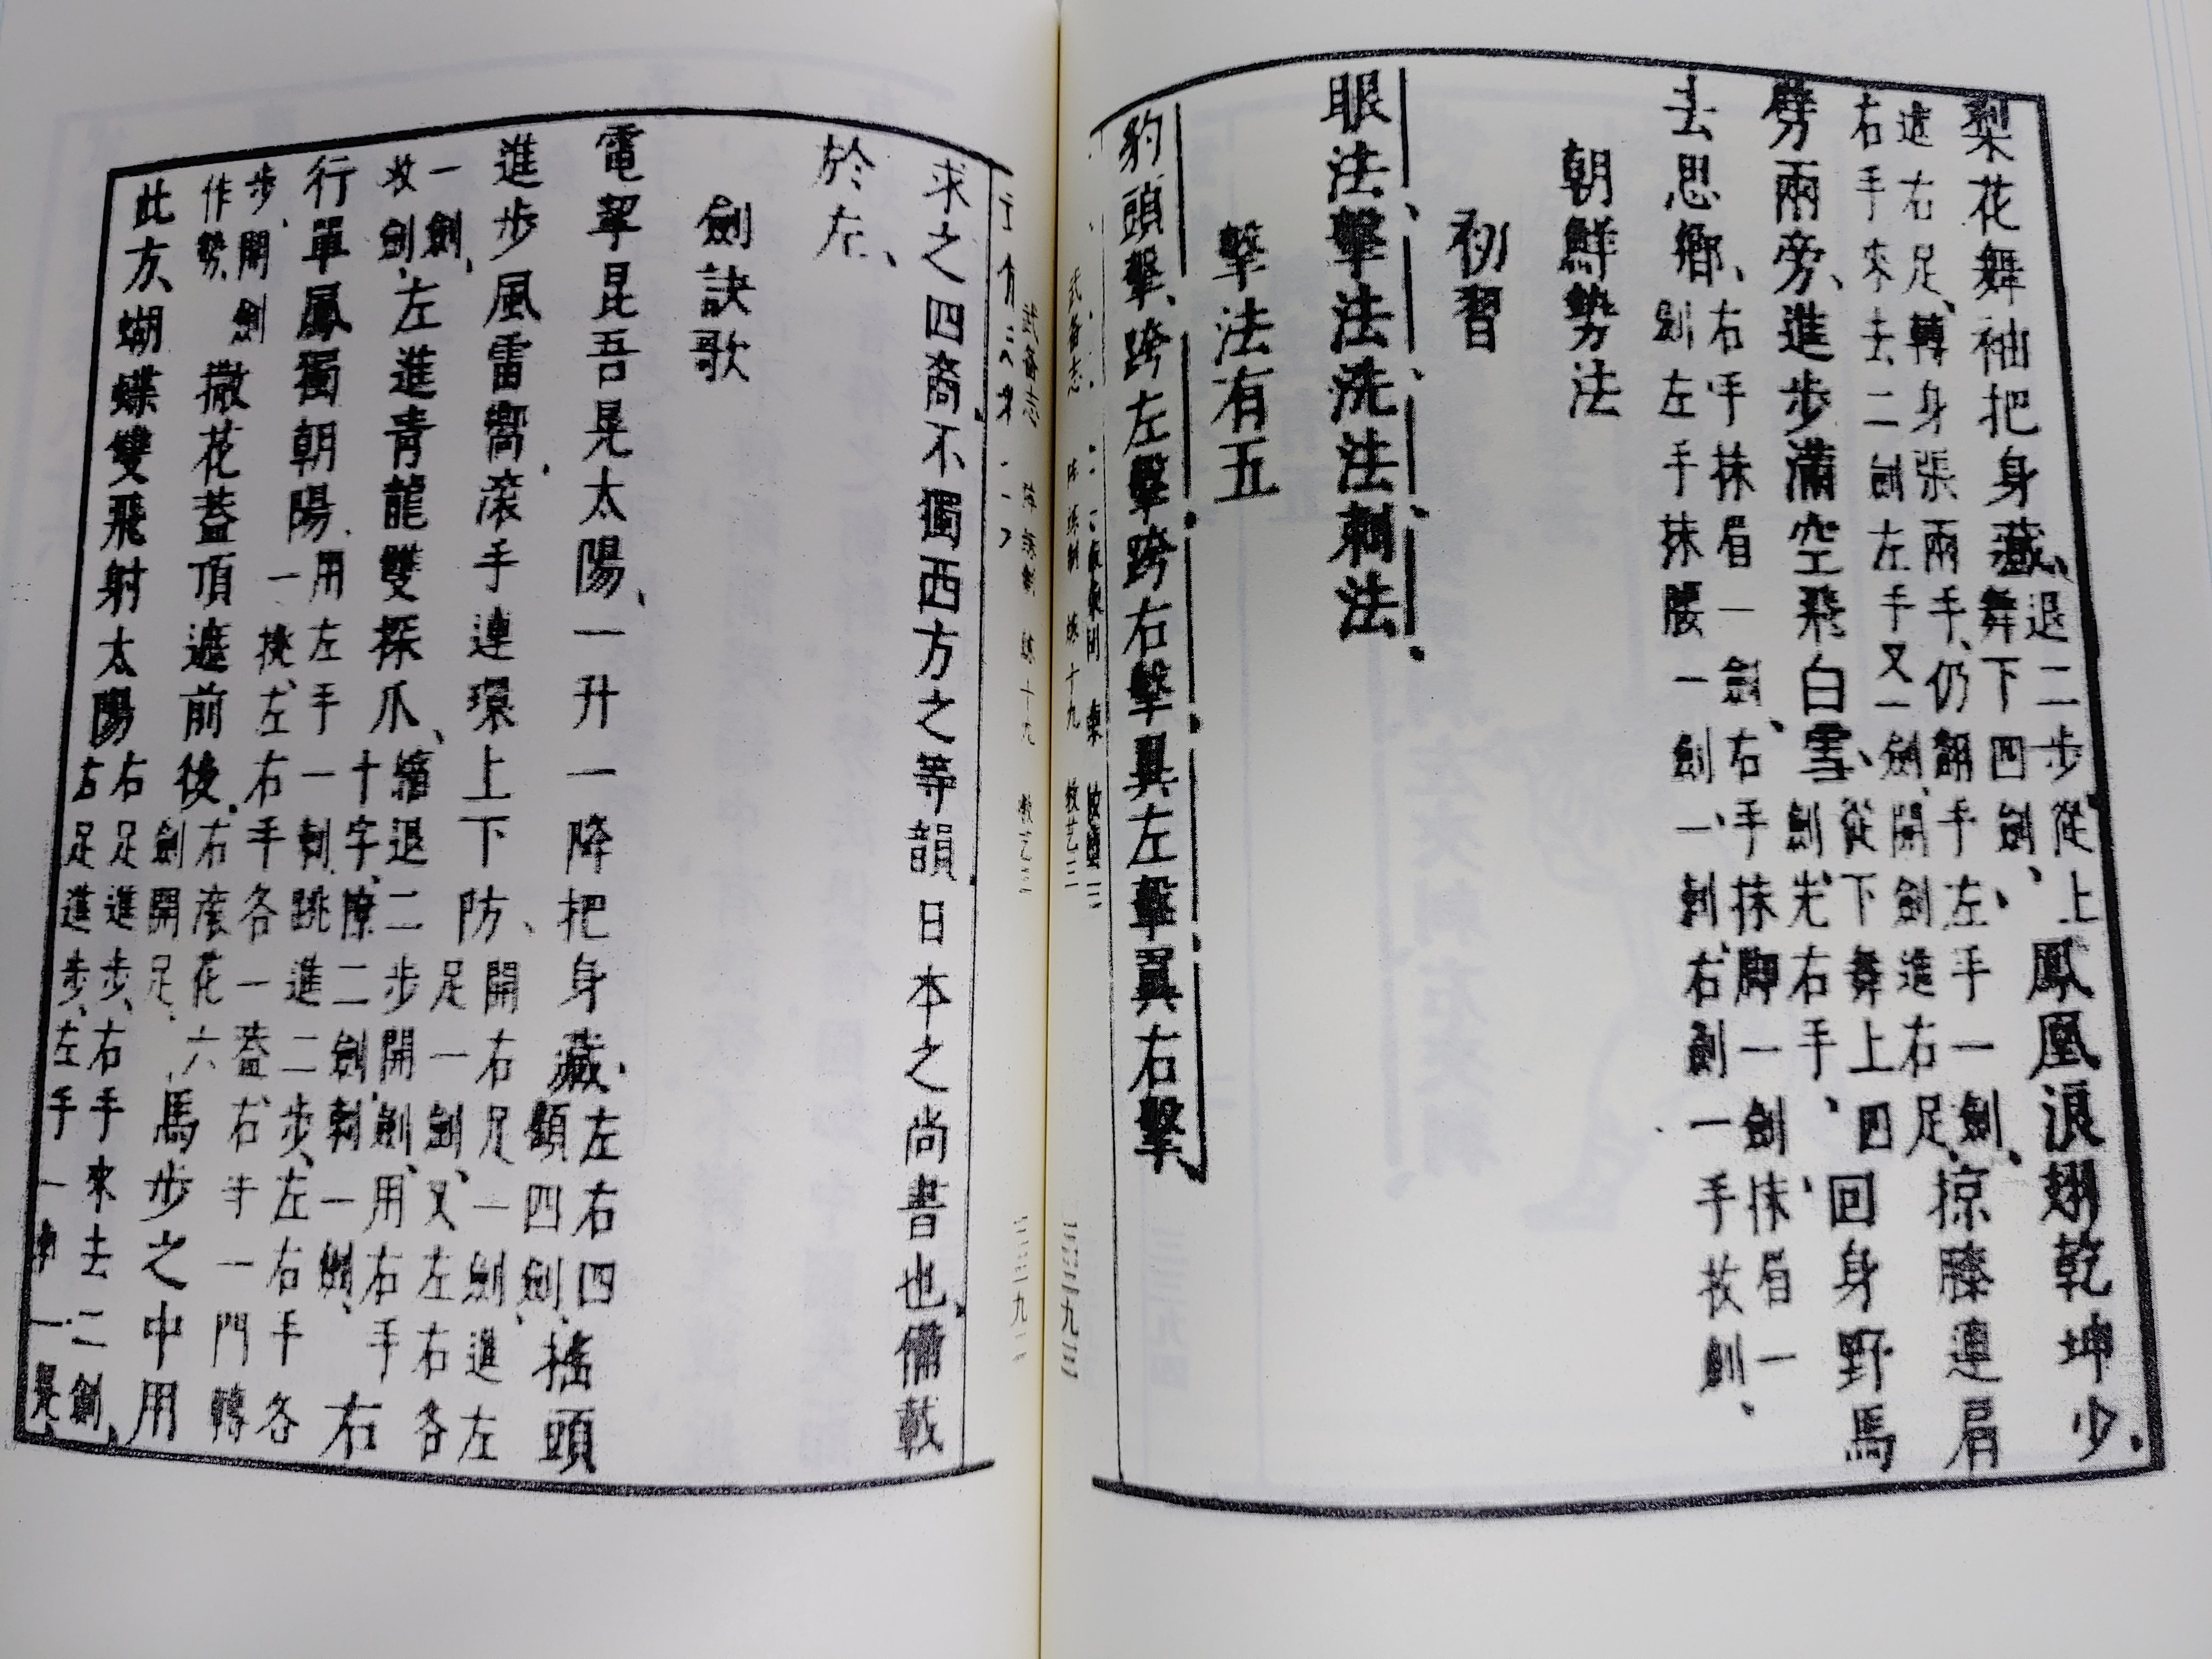 求之四裔不獨西方之等韻日本之尚書也備載
於左、
劍訣歌
電挈昆吾晃太陽、一升一降把身藏左右四劍、顧四劍、搖頭
進步風雷嚮滾手連環上下防、開右足一劍進左足一劍又左右各
一劍、收劍、左進青龍雙探爪、縮退二步開劍、用右手十字撩二劍、刺一劍、右
行單鳳獨朝陽用左手一刺跳進二步、左右手各一挑左右手各一蓋右手一門轉
步、開劍作勢撒花蓋頂遮前後右滾花六劍開足馬步之中用
此方蝴蝶雙飛射太陽右足進步、右手來去二劍、右足進步、左手一一晃
武备志 阵练制 练十九 教艺三
梨花舞袖把身藏、退二步從上舞下四劍、鳳凰浪翅乾坤少
遶右足轉身張兩手、仍翻手左手一劍、右手來去二劍左手又一劍開劍進右足掠膝連肩
劈兩旁、進步滿空飛白雪、從下舞上四劍先右手、回身野馬
去思鄉、右手抹眉一劍、右手抹脚一劍抹眉一劍左手抹腰一劍一刺右劍一手收劍、
朝鮮勢法
初習
眼法、擊法、洗法、刺法、
擊法有五
豹頭擊、跨左擊、跨右擊、翼左擊、翼右擊、
武备志 阵练制 练十九 教艺三